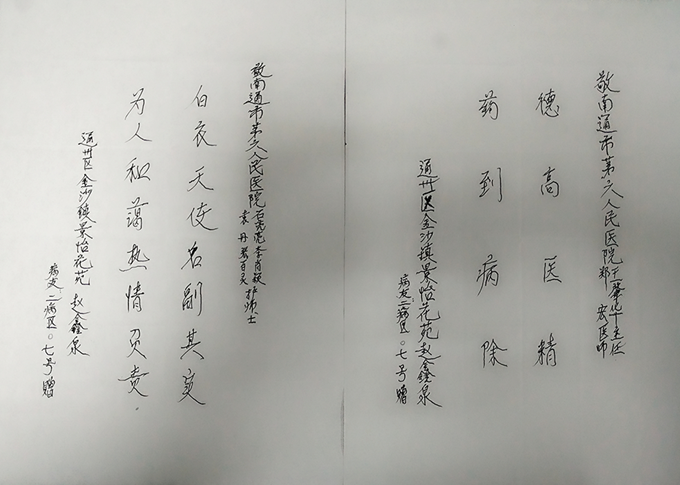 敬南通市第六人民医院王華华主任
郑宏医师
德高医精
药到病除
通州区金沙镇景怡花苑赵鑫泉
病友二病区〇七号赠
敬南通市第六人民医院
护师士
白衣天使名副其实
为人和蔼热情负责.
通州区金沙镇景怡花苑 赵鑫泉
病友二病区〇七号赠